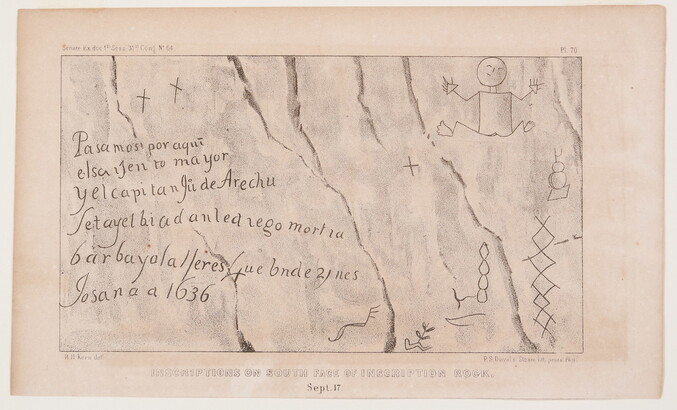 Senate Ex. doc. 1st Sess. 31st Cong. No 64.
Pl. 70.
Pasamos por aqui
elsarJento mayor
y el capitan Jũ de Arechu
letayelbiad anledrego mortin
barbayolalferes que bnde 2j nes
Josana a 1636
R.H. Kern del.
P.S. Duval's Steam lith. press Phil.
INSCRIPTIONS ON SOUTH FACE OF INSCRIPTION ROCK.
Sept. 17.